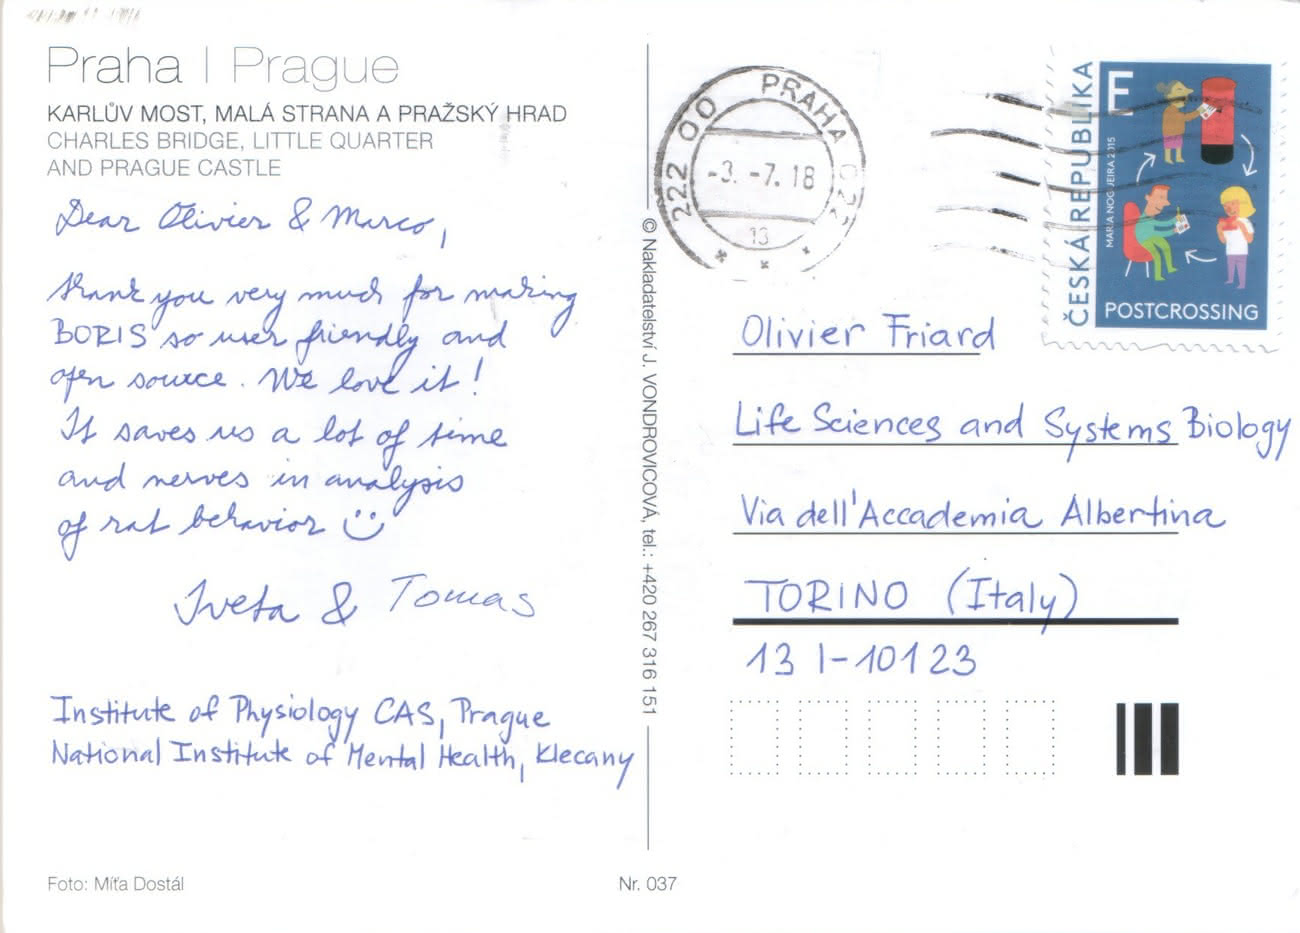 Praha | Prague
KARLŮV MOST, MALÁ STRANA A PRAŽSKÝ HRAD
CHARLES BRIDGE, LITTLE QUARTER
AND PRAGUE CASTLE
Dear Olivier & Marco,
thank you very much for making
BORIS so user friendly and
open source. We love it!
It saves us a lot of time
and nerves in analysis
of rat behavior :)
Iveta & Tomas
Institute of Physiology CAS, Prague
National Institute of Mental Health, Klecany
Foto: Míťa Dostál
© Nakladatelství J. VONDROVICOVÁ, tel.: +420 267 316 151
Nr. 037
222 00 PRAHA 022
-3.-7.18
13
ČESKÁ REPUBLIKA
E
MARIA NOGUEIRA 2015
POSTCROSSING
Olivier Friard
Life Sciences and Systems Biology
Via dell'Accademia Albertina
TORINO (Italy)
13 I-10123